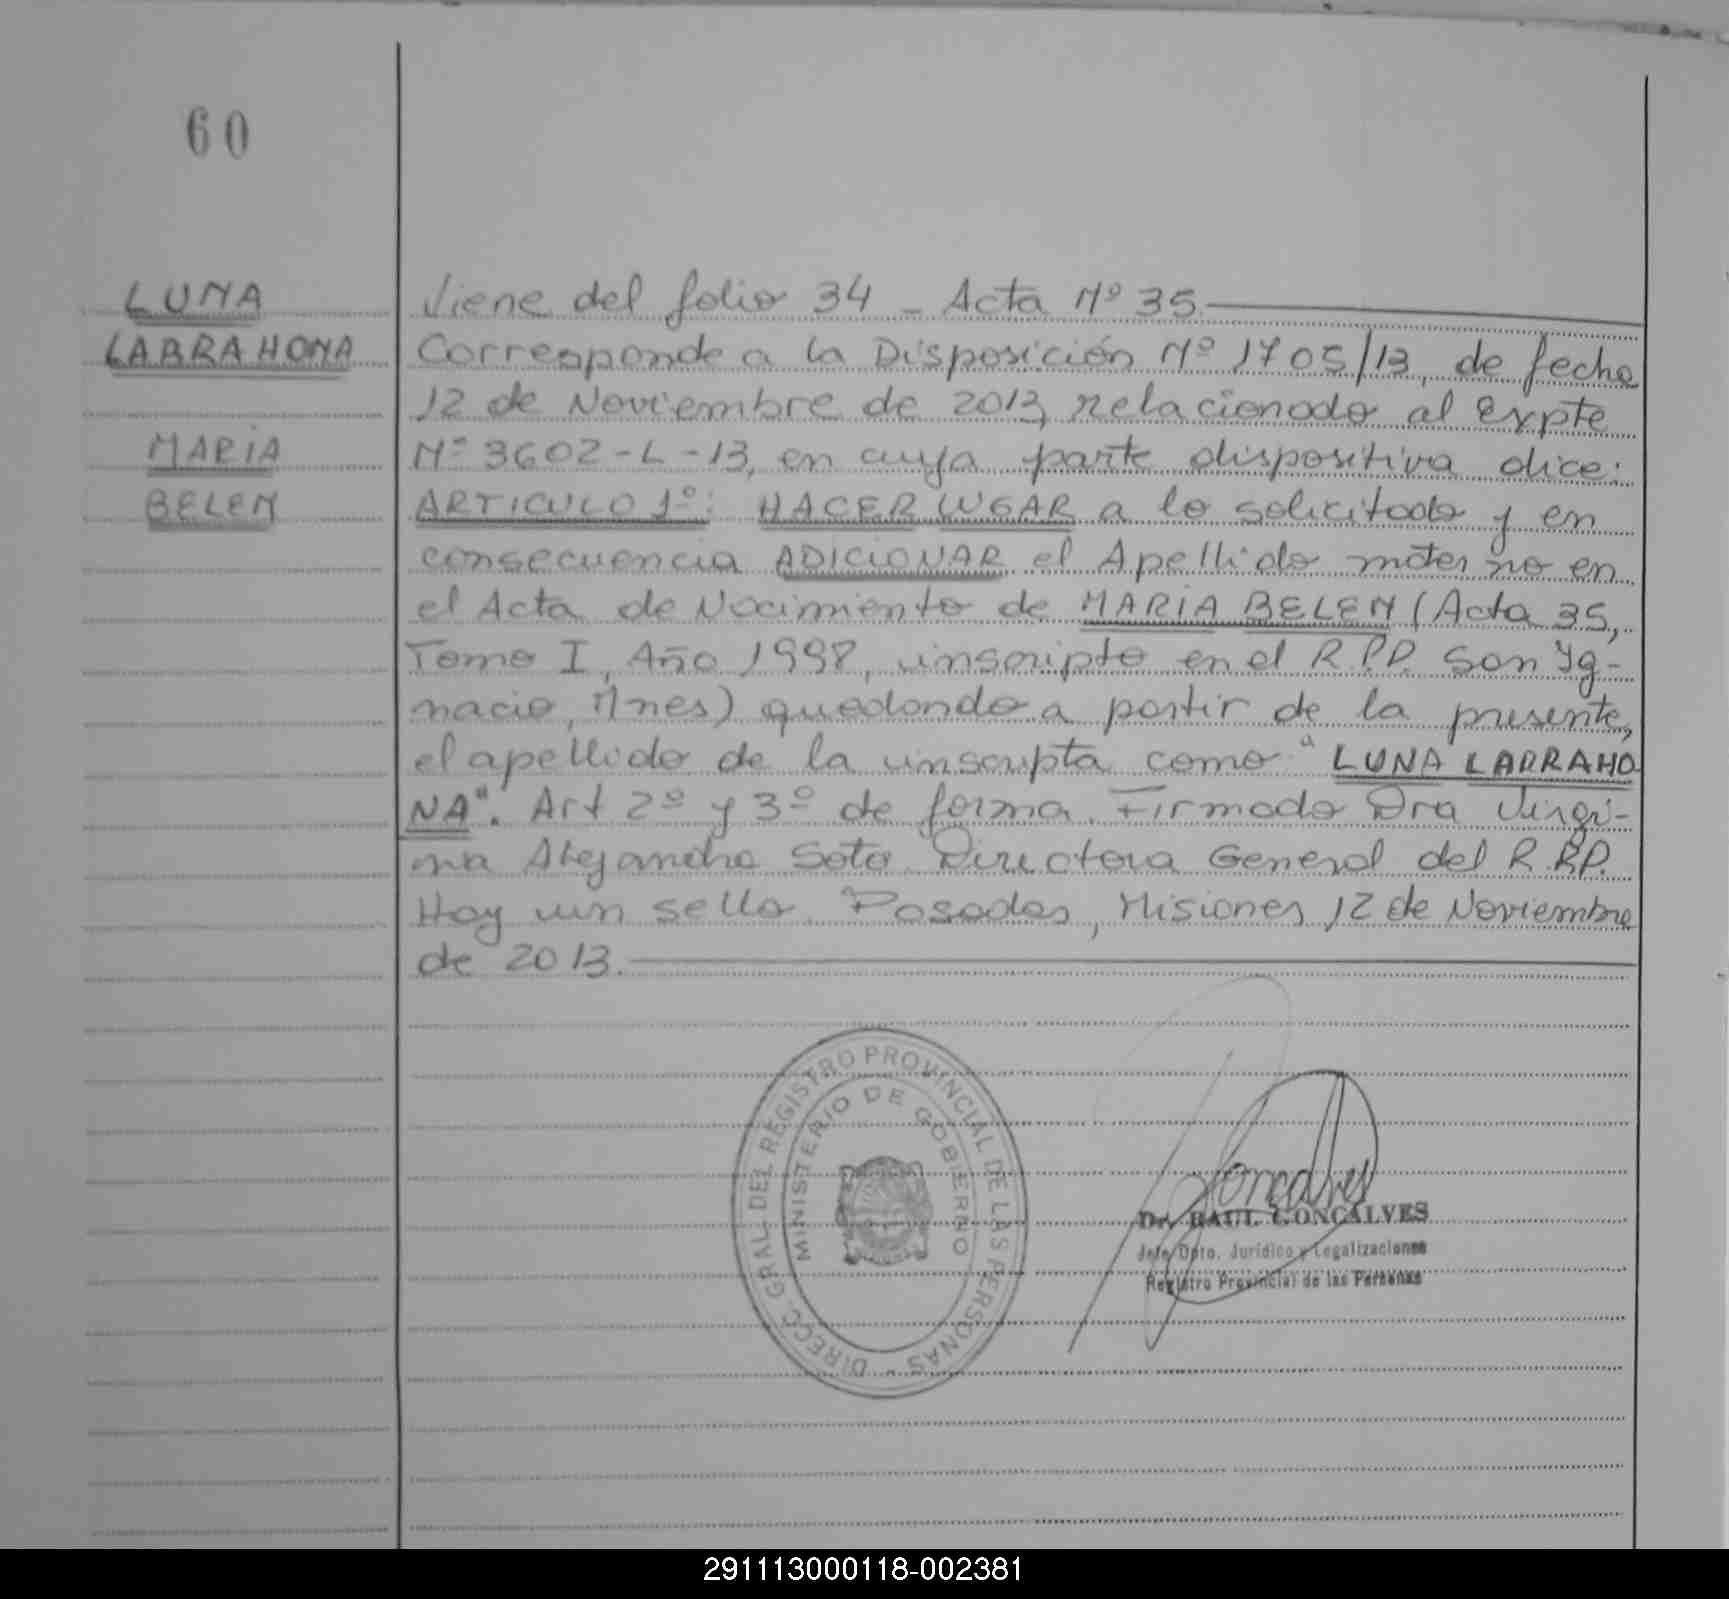 60
LUNA
LARRAHONA
MARIA
BELEN
Viene del folio 34 - Acta Nº 35.
Corresponde a la Disposición Nº 1705/13, de fecha
12 de Noviembre de 2013, relacionado al Expte
Nº 3602-L-13, en cuya parte dispositiva dice:
ARTICULO 1º: HACER LUGAR a lo solicitado y en
consecuencia ADICIONAR el Apellido materno en
el Acta de Nacimiento de MARIA BELEN (Acta 35,
Tomo I, Año 1998, inscripto en el R.P.P. San Ig-
nacio, Mnes) quedando a partir de la presente,
el apellido de la inscripta como "LUNA LARRAHO
NA". Art 2º y 3º de forma. Firmado Dra Virgi-
nia Alejandra Soto Directora General del R.P.P.
Hay un sello. Posadas, Misiones 12 de Noviembre
de 2013.
DIRECC. GRAL. DEL REGISTRO PROVINCIAL DE LAS PERSONAS -
MINISTERIO DE GOBIERNO
Goncalves
Dr. RAUL GONCALVES
Jefe Dpto. Jurídico y Legalizaciones
Registro Provincial de las Personas
291113000118-002381